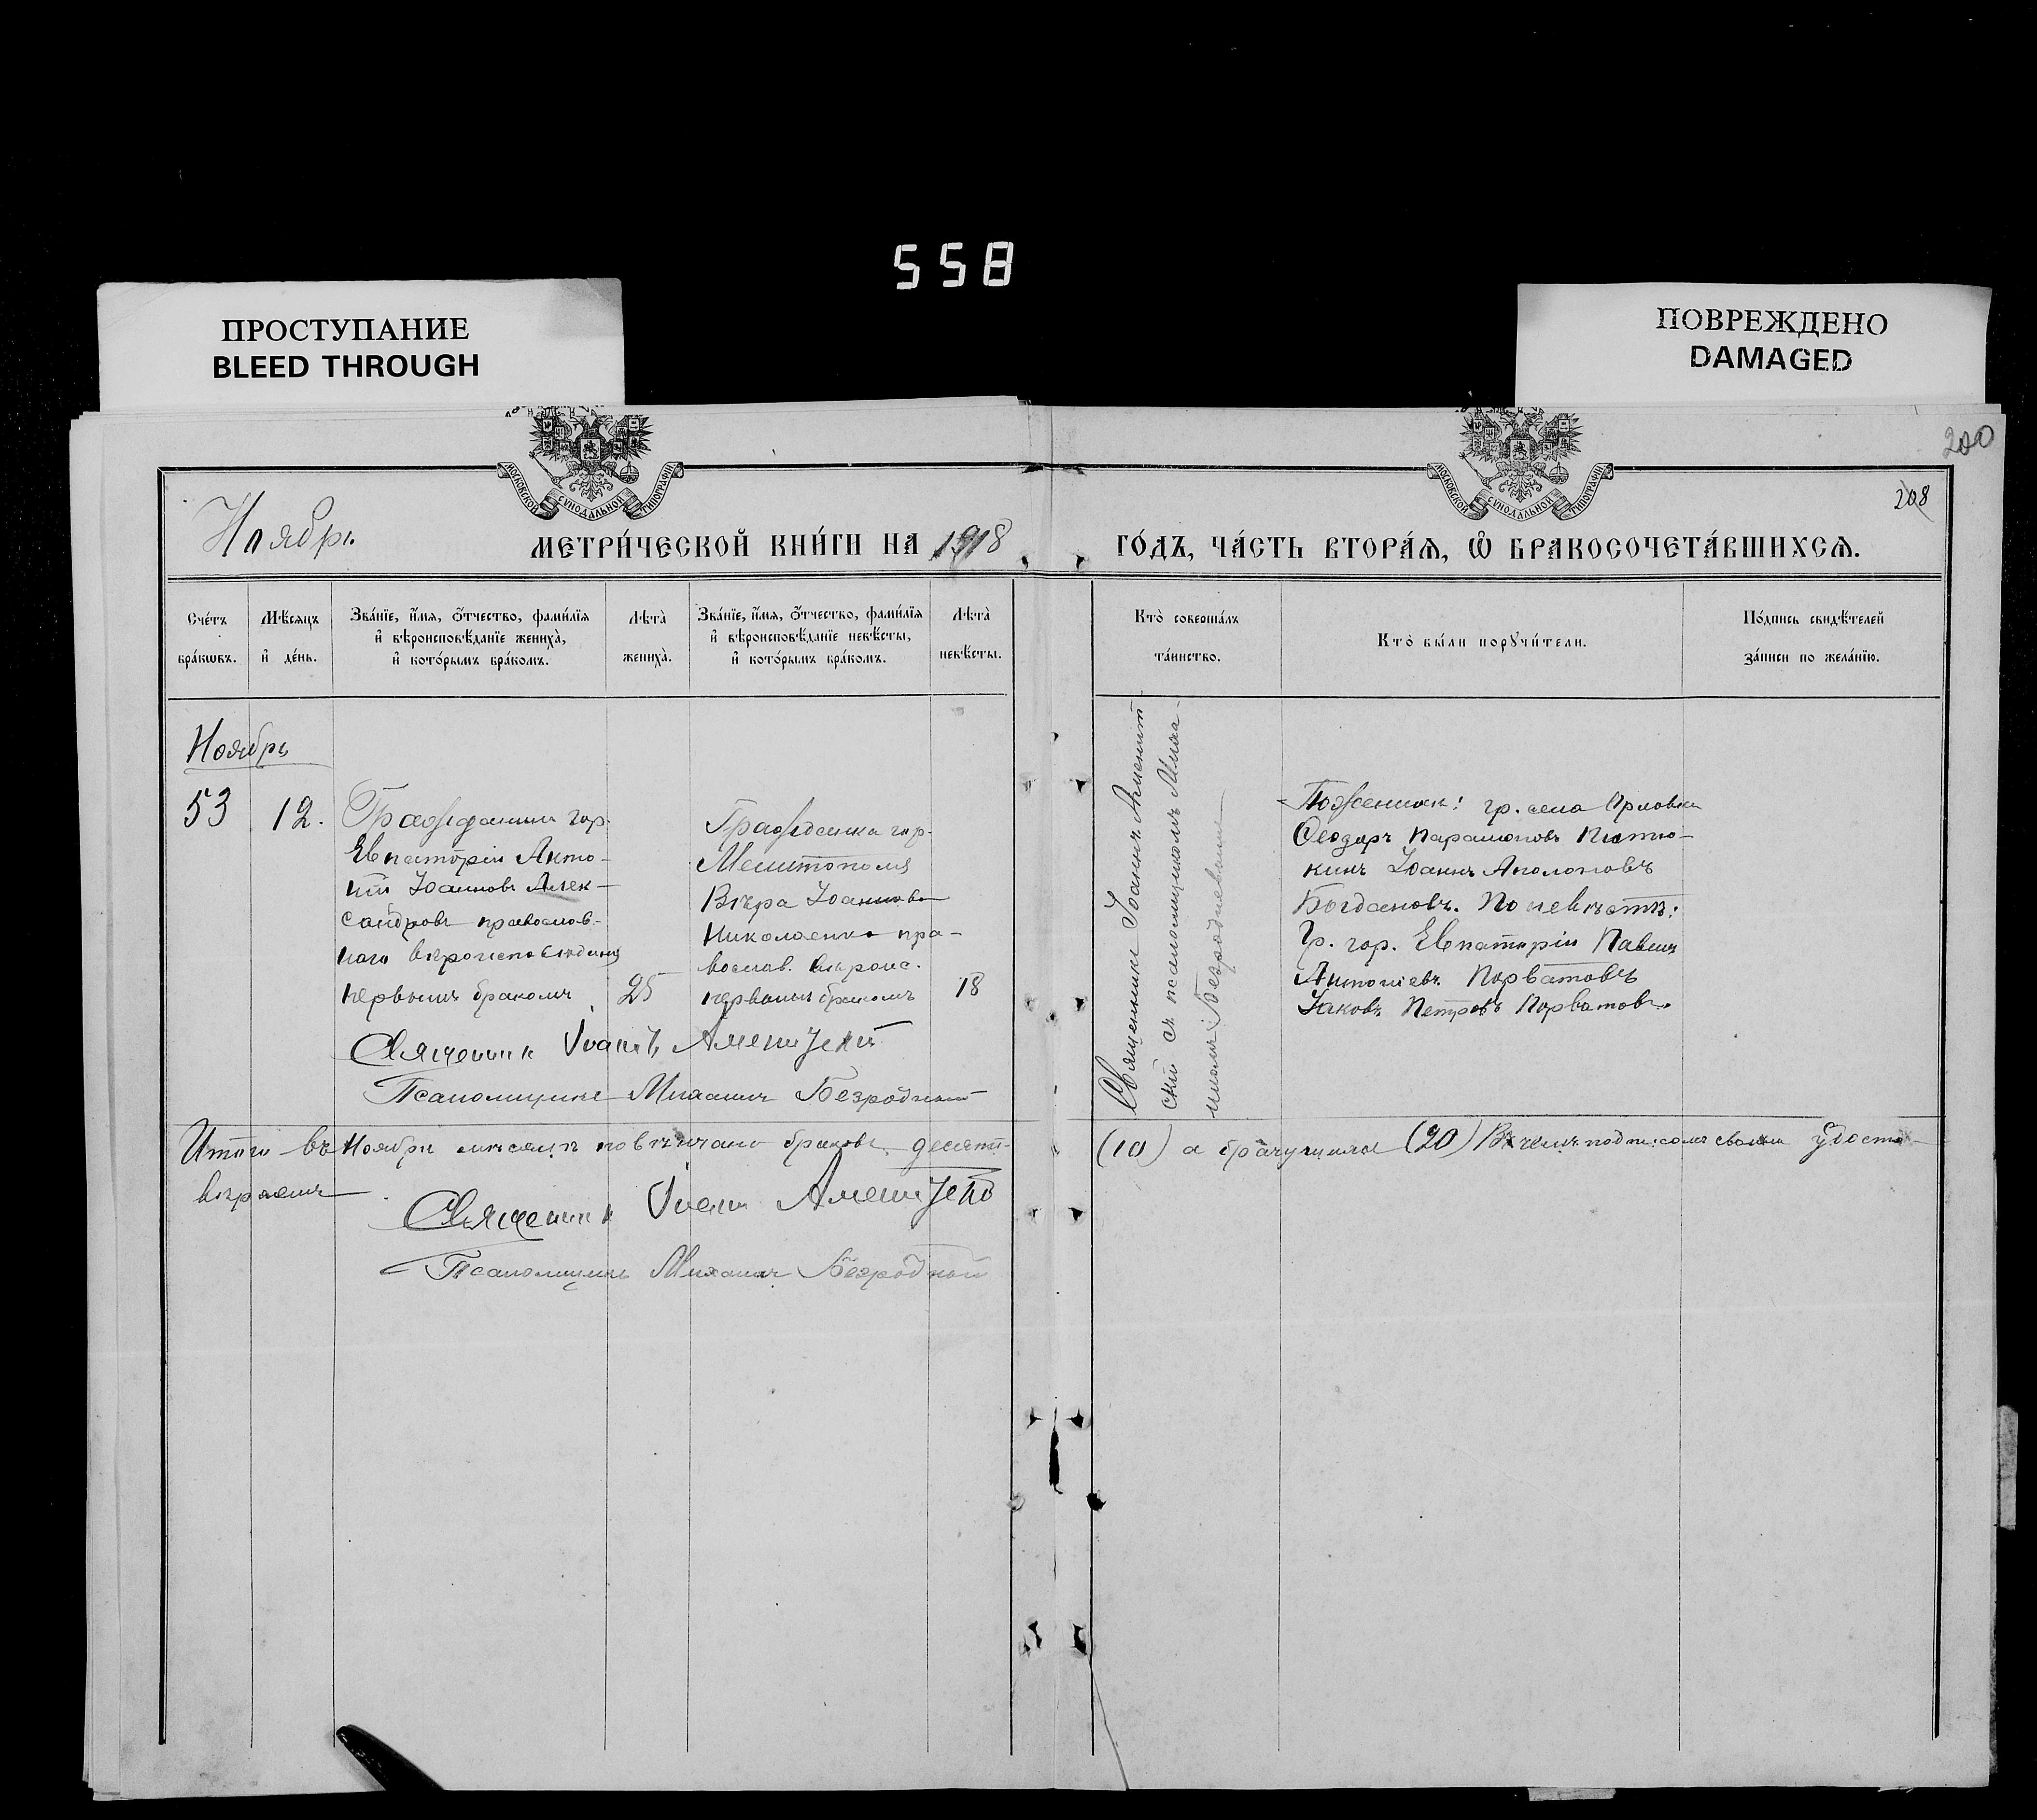 558
ПРОСТУПАНИЕ
BLEED THROUGH
ПОВРЕЖДЕНО
DAMAGED
МОСКОВСКОЙ СУНОДАЛЬНОЙ ТИПОГРАФІИ
МОСКОВСКОЙ СУНОДАЛЬНОЙ ТИПОГРАФІИ
200
208
Ноябрь
МЕТРИ́ЧЕСКОЙ КНИ́ГИ НА 1918
ГО́ДЪ, ЧА́СТЬ ВТОРА́Я, Ѽ БРАКОСОЧЕТА́ВШИХСЯ.
Сче́тъ
бра́кѡвъ.
Мѣ́сяцъ
и҆ де́нь.
Зва́нїе, и҆́мя, ѻ҆́тчество, фами́лїя
и҆ вѣроисповѣ́данїе жениха̀,
и҆ кото́рымъ бра́комъ.
Лѣта̀
жениха̀.
Зва́нїе, и҆́мя, ѻ҆́тчество, фами́лїя
и҆ вѣроисповѣ́данїе невѣ́сты,
и҆ кото́рымъ бра́комъ.
Лѣта̀
невѣ́сты.
Кто̀ соверша́лъ
та́инство.
Кто̀ бы́ли порꙋчи́тели.
По́дпись свидѣ́телей
за́писи по жела́нїю.
Ноябрь
53
12.
Гражданинъ гор.
Евпаторіи Анто-
ній Іоанновъ Алек-
сандровъ православ-
наго вѣроисповѣданія
первымъ бракомъ
25
Гражданка гор.
Мелитополя
Вѣра Іоаннова
Николаенко пра-
вослав. вѣроис.
первымъ бракомъ
18
Священникъ Іоаннъ
скій съ псаломщикомъ Миха-
иломъ Безроднымъ
По женихѣ: гр. села Орловки
Ѳеодоръ Парамоновъ
кинъ Іоаннъ Аполоновъ
Богдановъ. По невѣстѣ:
Гр. гор. Евпаторіи Павелъ
Антоніевъ Порватовъ
Іаковъ Петровъ Порватовъ
Священникъ Іоаннъ
Псаломщикъ Михаилъ Безродный
Итого въ Ноябрѣ мѣсяцѣ повѣнчано браковъ десять
(10) а брачущихся (20) Въ чемъ подписомъ своимъ удосто-
вѣряемъ
Священникъ Іоаннъ
Псаломщикъ Михаилъ Безродный